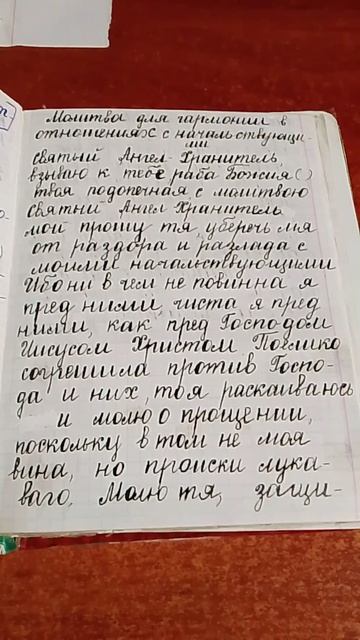 Молитва для гармонии в
отношениях с начальствующи-
ми
Святый Ангел-Хранитель,
взываю к тебе раба Божия ( )
твоя подопечная с молитвою
Святый Ангел Хранитель
мой прошу тя, убереч мя
от раздора и разлада с
моими начальствующими
Ибо ни в чем не повинна я
пред ними, чиста я пред
ними, как пред Господом
Иисусом Христом Поелико
согрешила против Госпо-
да и них, то я раскаиваюсь
и молю о прощении,
поскольку в том не моя
вина, но происки лука-
ваго. Молю тя, защи-